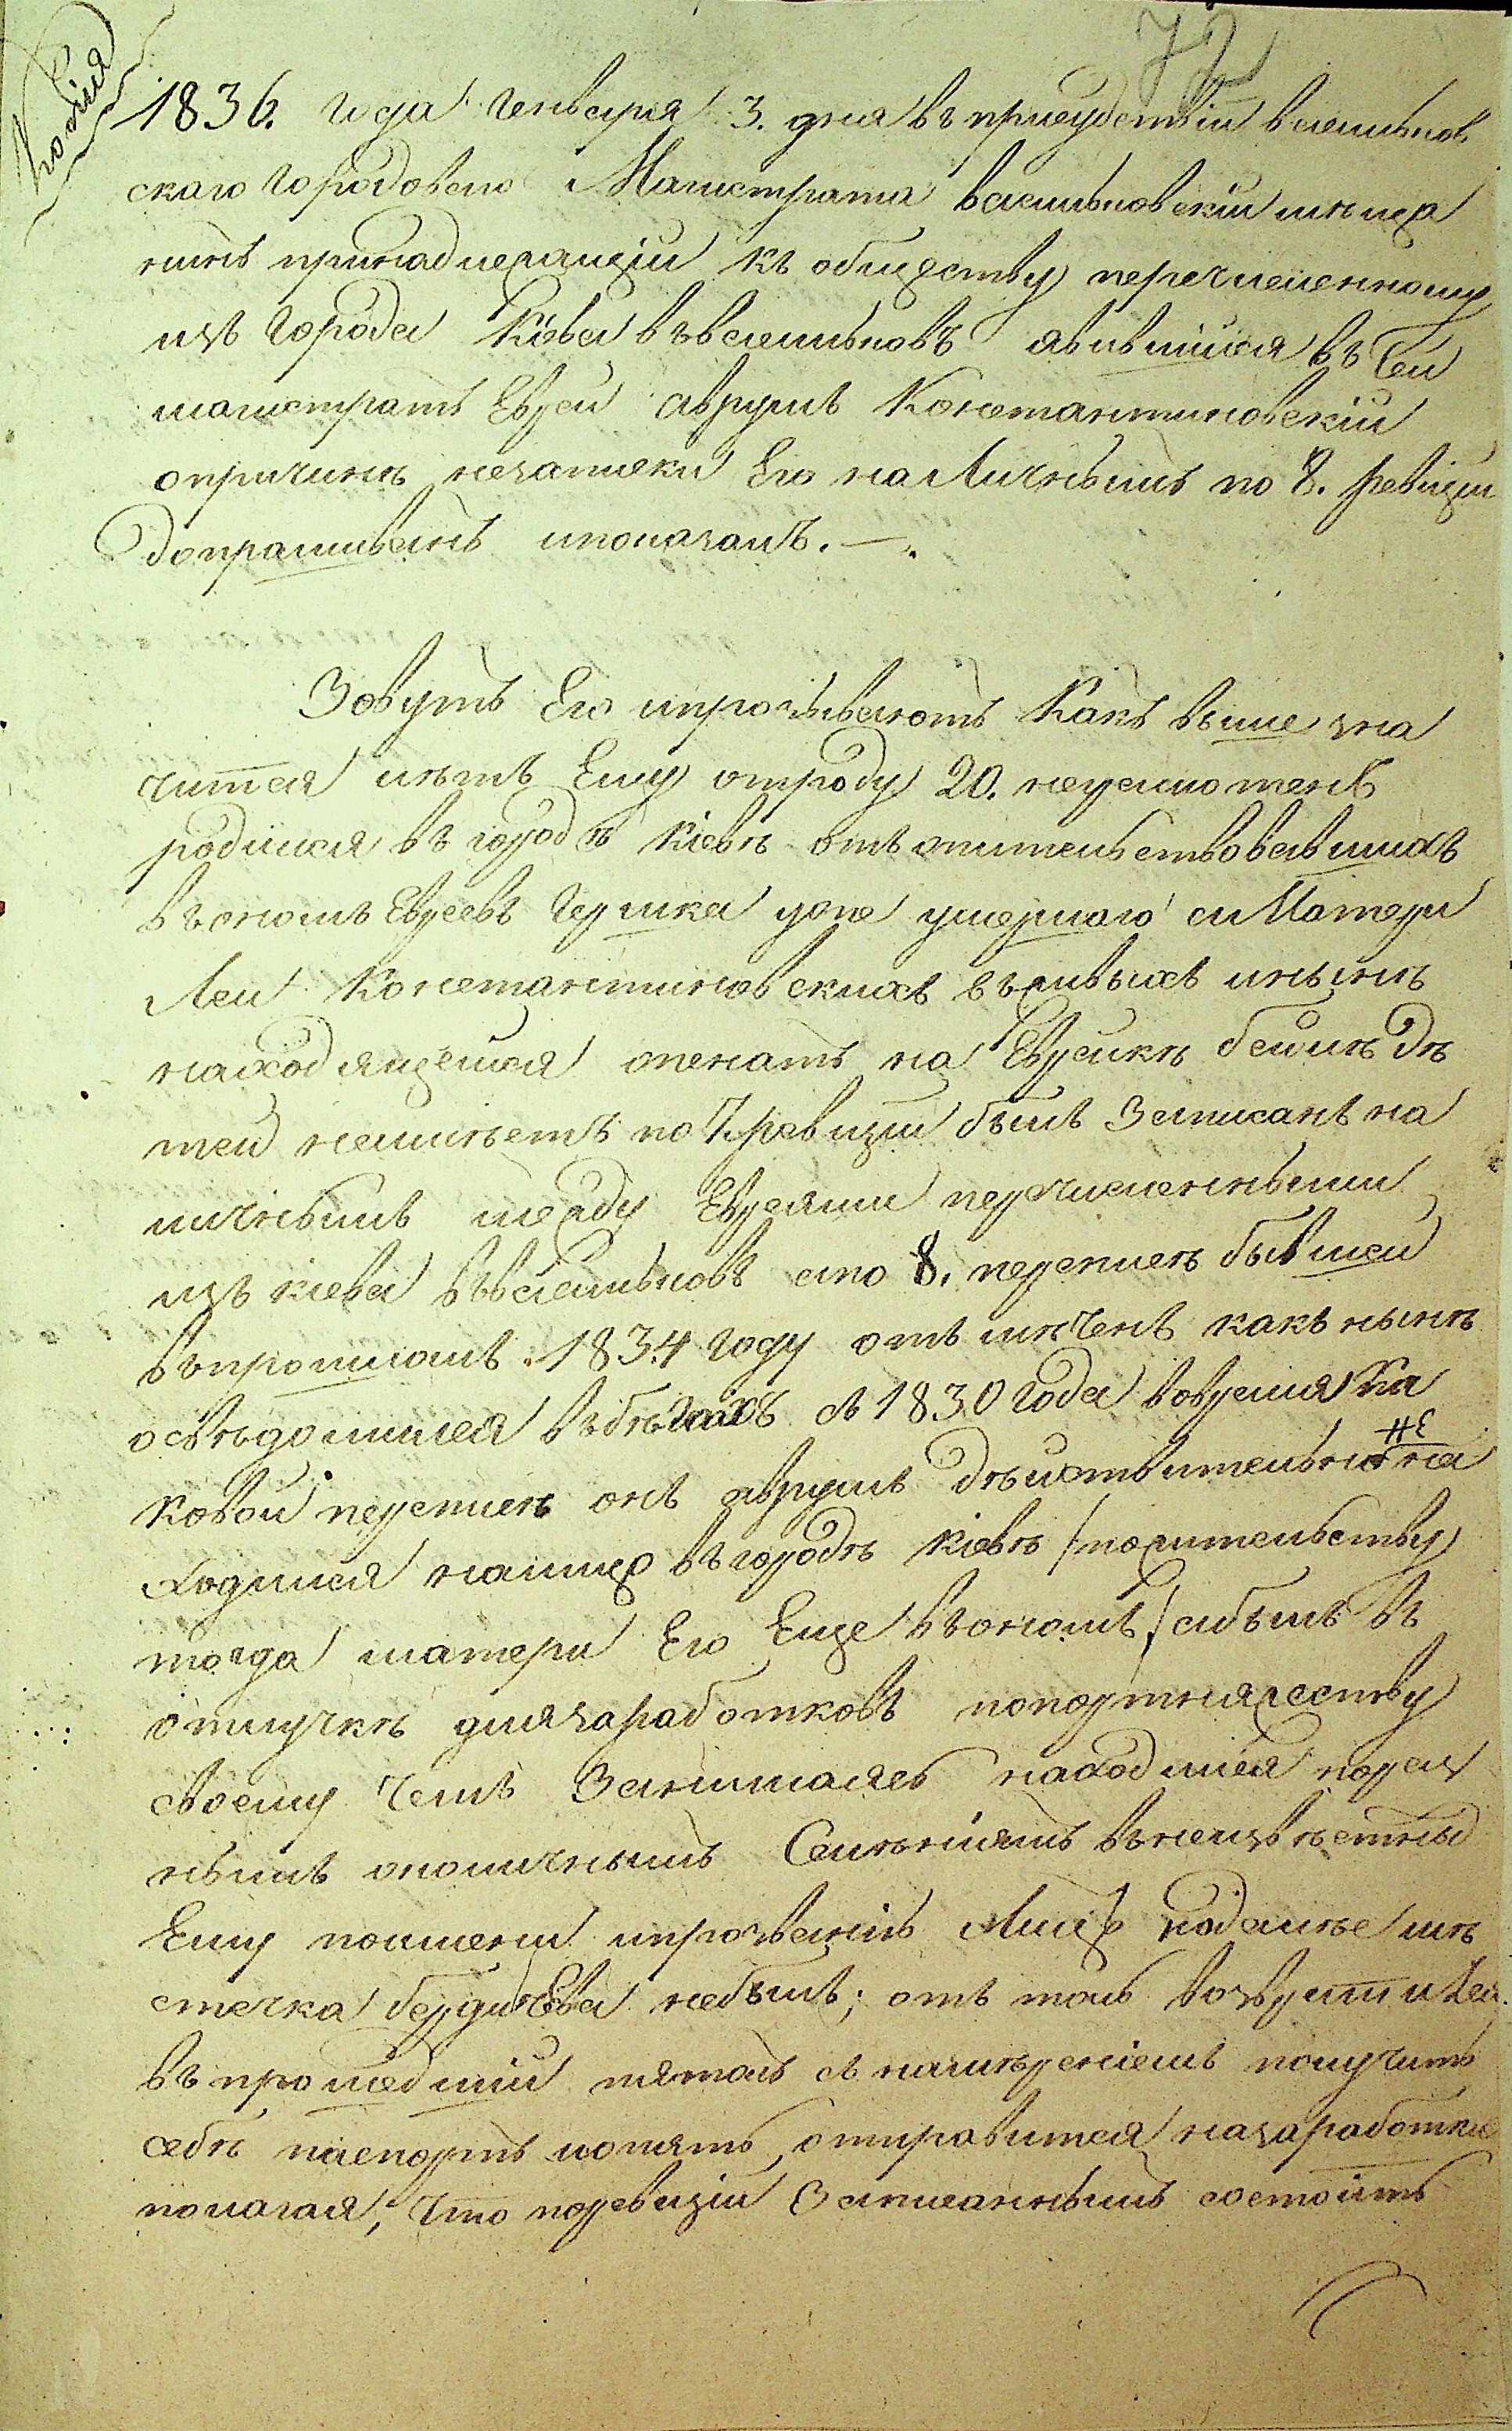 Копія
72
1836. года Генваря 3. дня въ присудствіи васильков
скаго городоваго Магистрата васильковскіи мѣща
нинъ принадлежащіи къ обществу перечисленному
изъ города Кіева въ васильковъ явившійся въ Сеи
магистратъ Евреи Аврумъ Константиновскіи
опричинѣ незаписки Его на Личнымъ по 8. ревизіи
допрашиванъ ипоказалъ. —
Зовутъ Его ипрозываютъ Какъ выше зна
чится лѣтъ Ему отроду 20. неграмотенъ
родился въ городѣ Кіевѣ отъ жительствовавшихъ
въ ономъ Евреевъ Гершка уже умершаго и Матери
Леи Константиновскихъ въ живыхъ инынѣ
находящейся женатъ на Евреикѣ Беилѣ дѣ
теи неимѣетъ по 7. ревизіи былъ Записанъ на
личнымъ между Евреями перечисленными
изъ кіева въ васильковъ апо 8. переписѣ бывшеи
въ прошломъ 1834 году отъмѣченъ какъ нынѣ
освѣдомился въ бѣгахъ съ 1830 года вовремя Ка
ковой переписѣ онъ аврумъ дѣиствительно не на
ходился налицо въ городѣ Кіевѣ /пожительству
тогда матери Его Еще въ ономъ/ абылъ въ
отлучкѣ для заработковъ попортняжеству
своему Чемъ Занимаясь находился поразъ
нымъ околичнымъ Селѣніямъ въ неизвѣстны
Ему поимени ипрозванію Лицъ подалѣе мѣ
стечка бердичева небылъ; отъ толь возвратился
въ прошедшій пятокъ съ намѣреніемъ получить
себѣ паспортъ иопять отправится на заработки
полагая, Что поревизіи Записаннымъ состоитъ